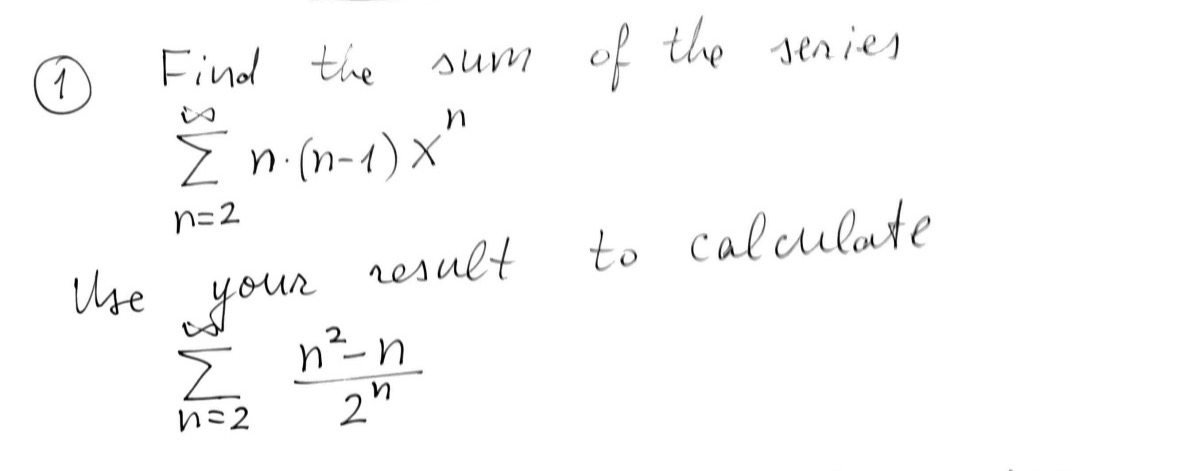 ① Find the sum of the series
∞
Σ n·(n-1) xⁿ
n=2
Use your result to calculate
∞
Σ n²-n / 2ⁿ
n=2